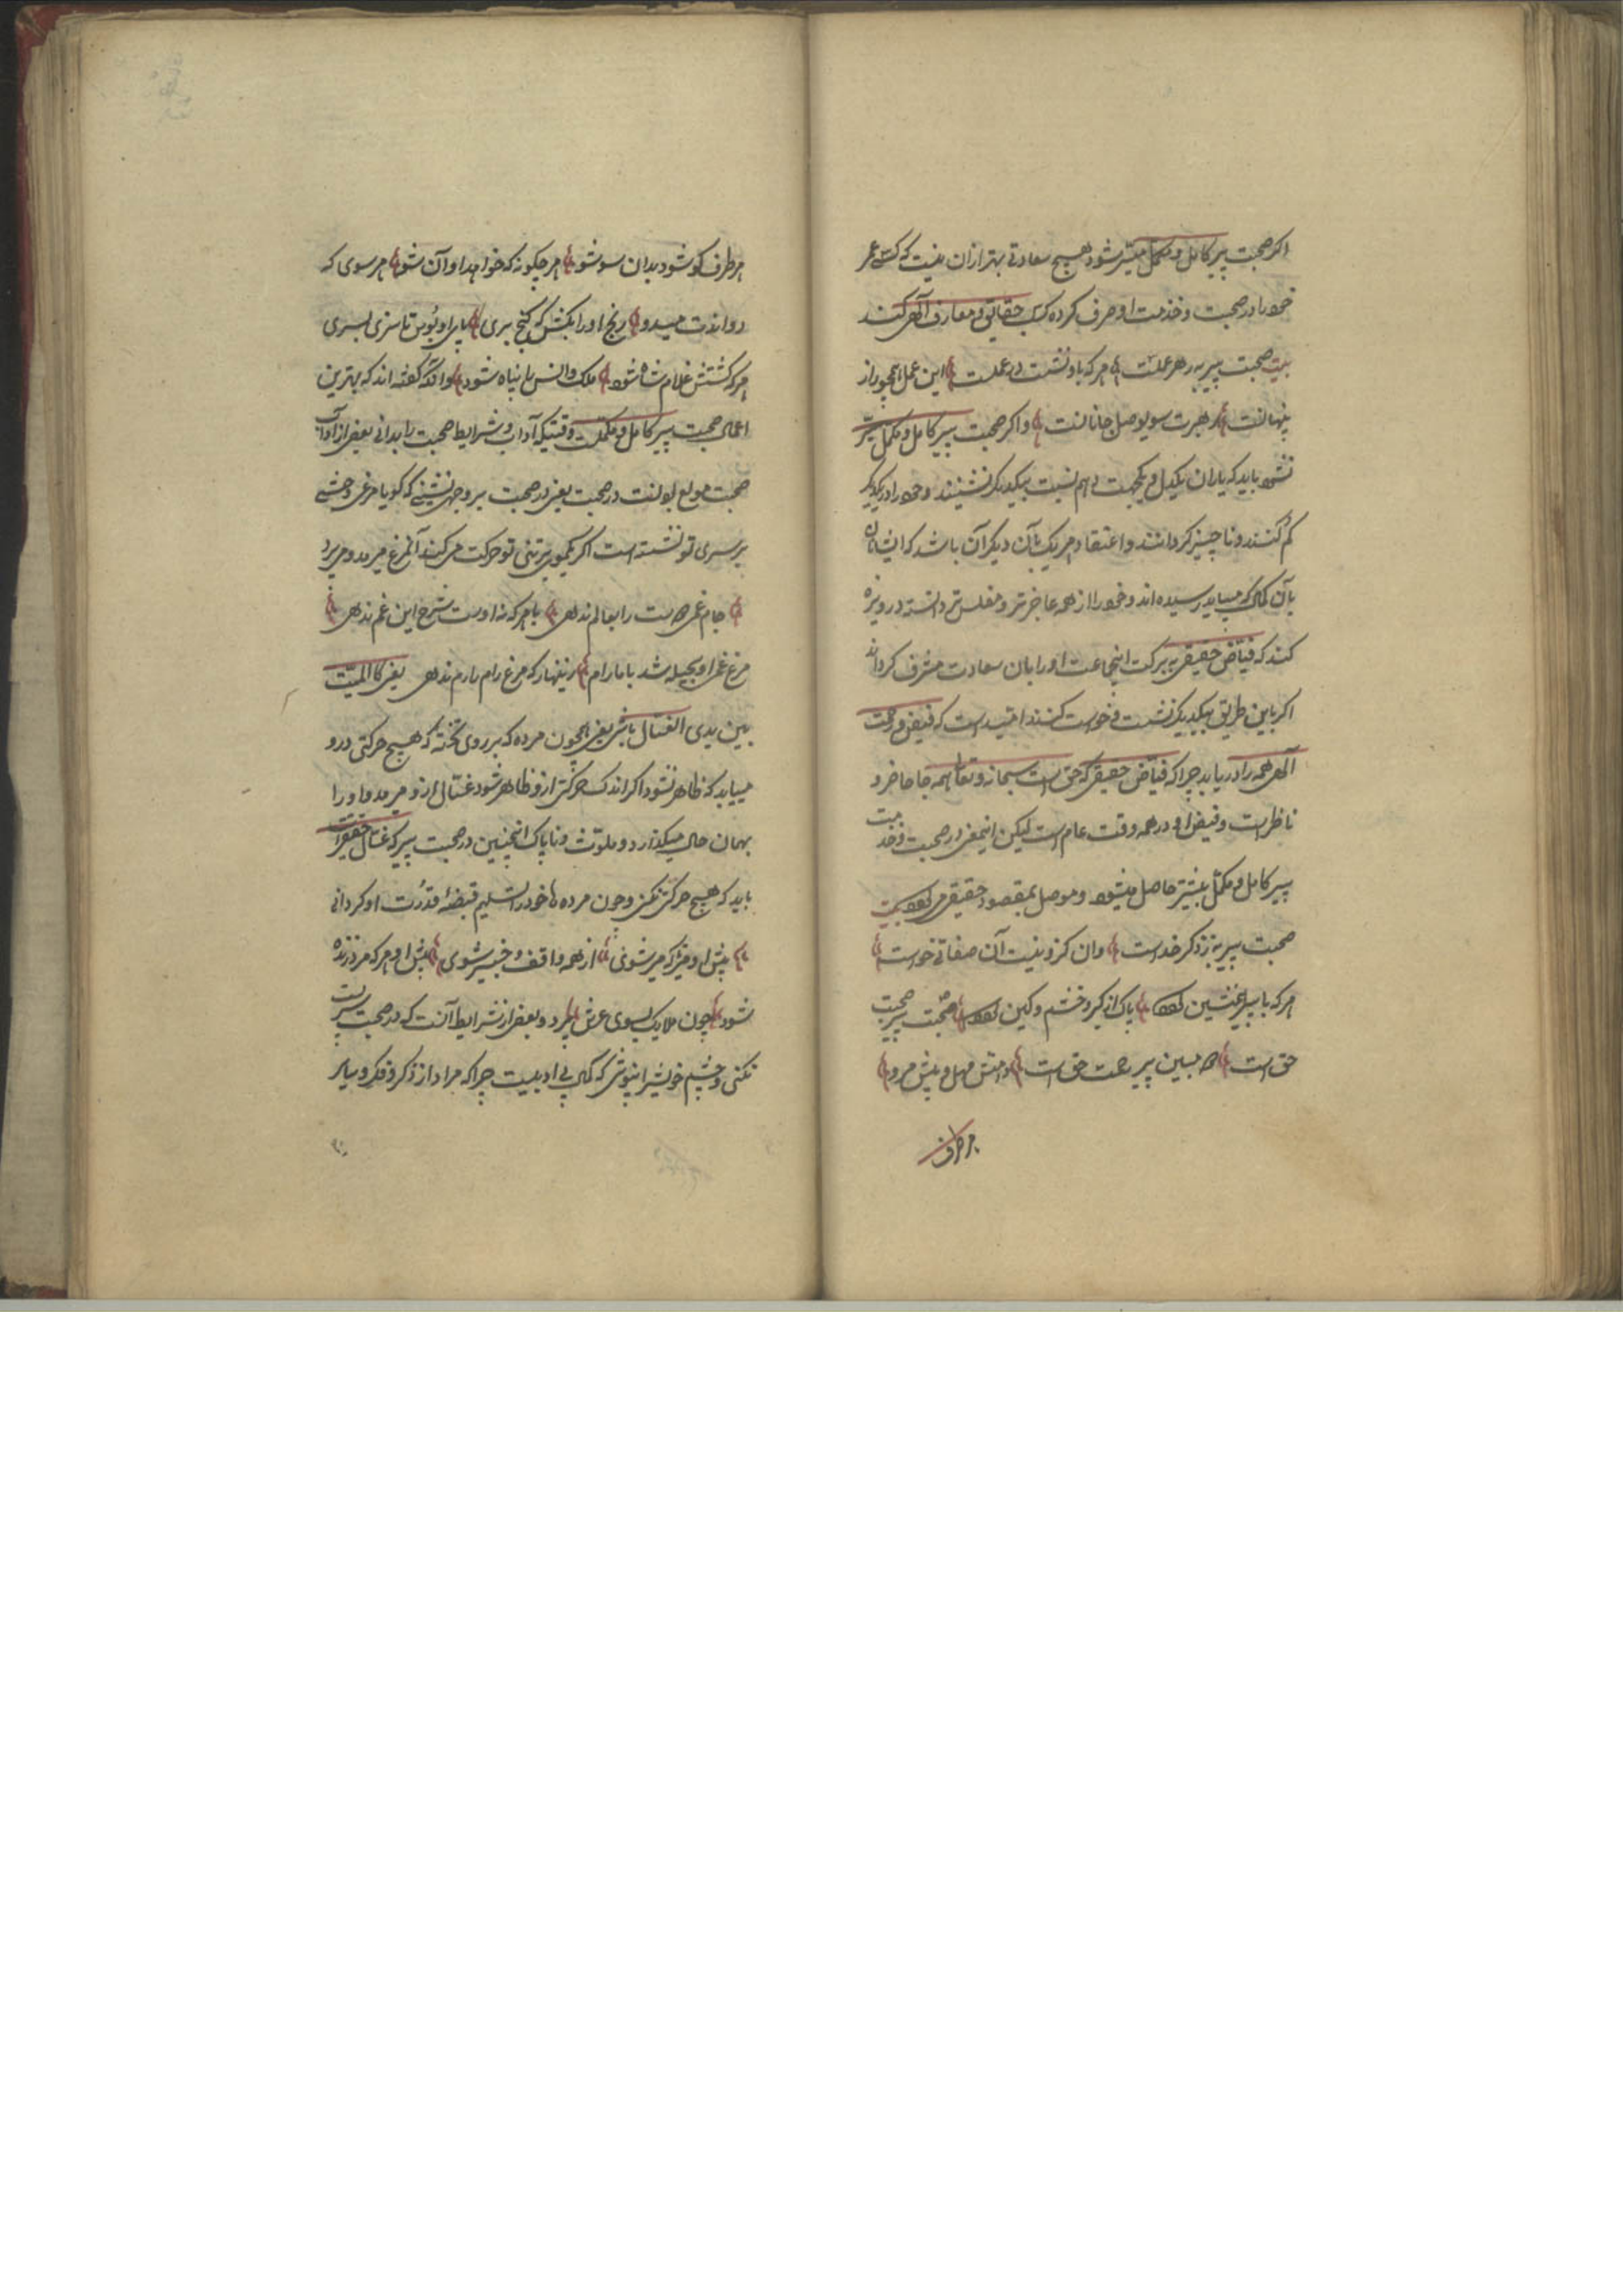 اکر صحبت پیر کامل و مکمل میسر شود هیچ سعادتی بهتر ازان نیست که کسی عمر
خود را در صحبت و خدمت او صرف کرده کسب حقایق و معارف آلهی کنند
بیت صحبت پیر به ز هر عملست هر که با او نشست در عملست این عمل همچو راز
پنهانست رهبرت سوی وصل جانانست و اکر صحبت پیر کامل و مکمل میسر
نشود باید که یاران یکدل و یکجهت دهم نسبت بیکدیکر نشینند و خود را در یکدیکر
کم کنند و ناچیز کردانند و اعتقاد هر یک بآن دیکر آن باشد که ایشان
بآن کمالی که میباید رسیده اند و خود را از همه عاجزتر و مفلس تر دانسته دریوزه
کنند که فیاض حقیقی به برکت اینجماعت او را بان سعادت مشرف کرداند
اکر باین طریق بیکدیکر نشست و خواست کنند امتید است که فیض و رحمت
آلهی همه را دریابد چرا که فیاض حقیقی که حق است سبحانه و تعالی همه جا حاضر و
ناظر است و فیض او در همه وقت عام است لیکن اینمعنی در صحبت و خدمت
پیر کامل و مکمل بیشتر حاصل میشود و موصل بمقصود حقیقی می کردد بیت
صحبت پیر به ز ذکر خداست وان کزو نیست آن صفاتی خداست
هر که با پیر همنشین کردد پاک از کبر و خشم و کین کردد صحبت پیر صحبت
حق است هر مبین پیر رحمت حق است دامنش مهل و پیش مرو
هر طرف
هر طرف کو شود بدان سو شو هر چکونه که خواهد او آن شو هر سوی که
دواندت میدو رنج او را بکش که کنج بری پای او بوس تا سزی بسری
هر که کشتش غلام شاه شود ملک وانس را پناه شود و آنکه کفته اند که بهترین
اعمال صحبت پیر کامل و مکملست وقتیکه آداب و شرایط صحبت را بدانی بعضی از آداب
صحبت مولع بو لنت در صحبت یعنی در صحبت بر وجهی نشینی که کویا مرغی وحشی
بر سری تو نشسته است اکر یکموی بر تنی تو حرکت می کند آنمرغ میرمد و میپرد
جام غمی دوست را بعالم ندهی با هر که نه اوست شرح این غم ندهی
مرغ غم او بحیله شد با ما رام زینهار که مرغ رام را رم ندهی یعنی کالمیت
بین یدی الغسال باشی یعنی همچون مرده که بر روی تخته که هیچ حرکتی درو
میباید که ظاهر نشود اکر اندک حرکتی ازو ظاهر شود غسال ازو میرمد و او را
بهمان حال میکذارد و ملوث و ناپاک اینچنین در صحبت پیر که غسال حقیقیست
باید که هیچ حرکتی نکنی و چون مرده ها خود را تسلیم قبضهٔ قدرت او کردانی
پیش او میز که میر شوی از همه واقف و خبیر شوی پیش او هر که مرد زنده
شود چون ملایک بسوی عرش پرد و بعضی از شرایط آنست که در صحبت پیر پست
نکنی و چشم خویش را نپوشی که کمالی بی ادبیست چرا که مراد از ذکر و فکر و سایر